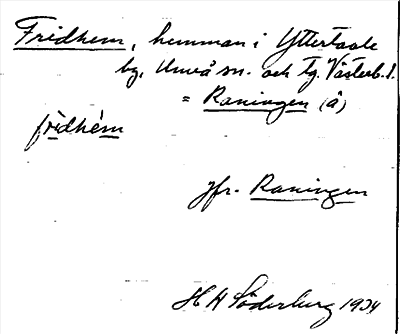 Fridhem, hemman i Yttertavle
by, Umeå sn. och tg. Västerb. l.
= Raningen (å)
fridhèm
jfr. Raningen
H H Söderberg 1934